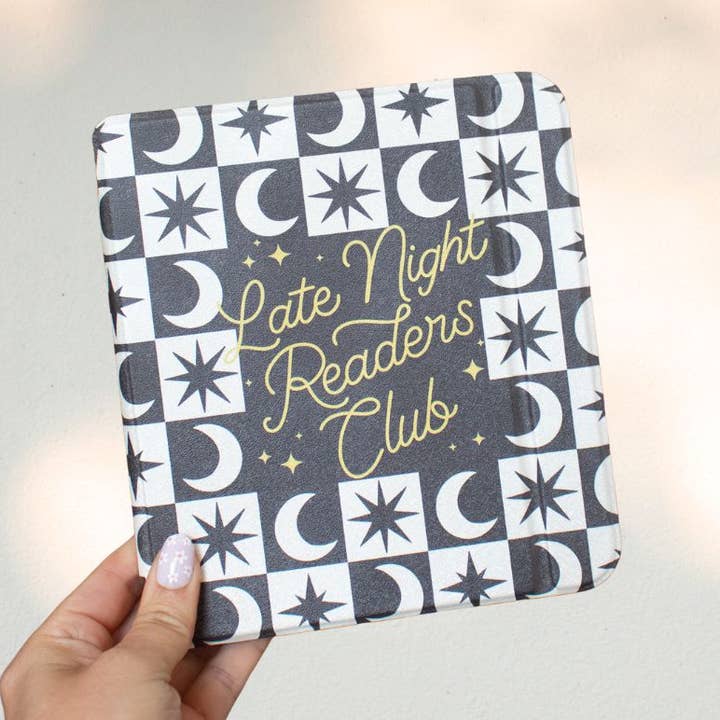 Late Night
Readers
Club